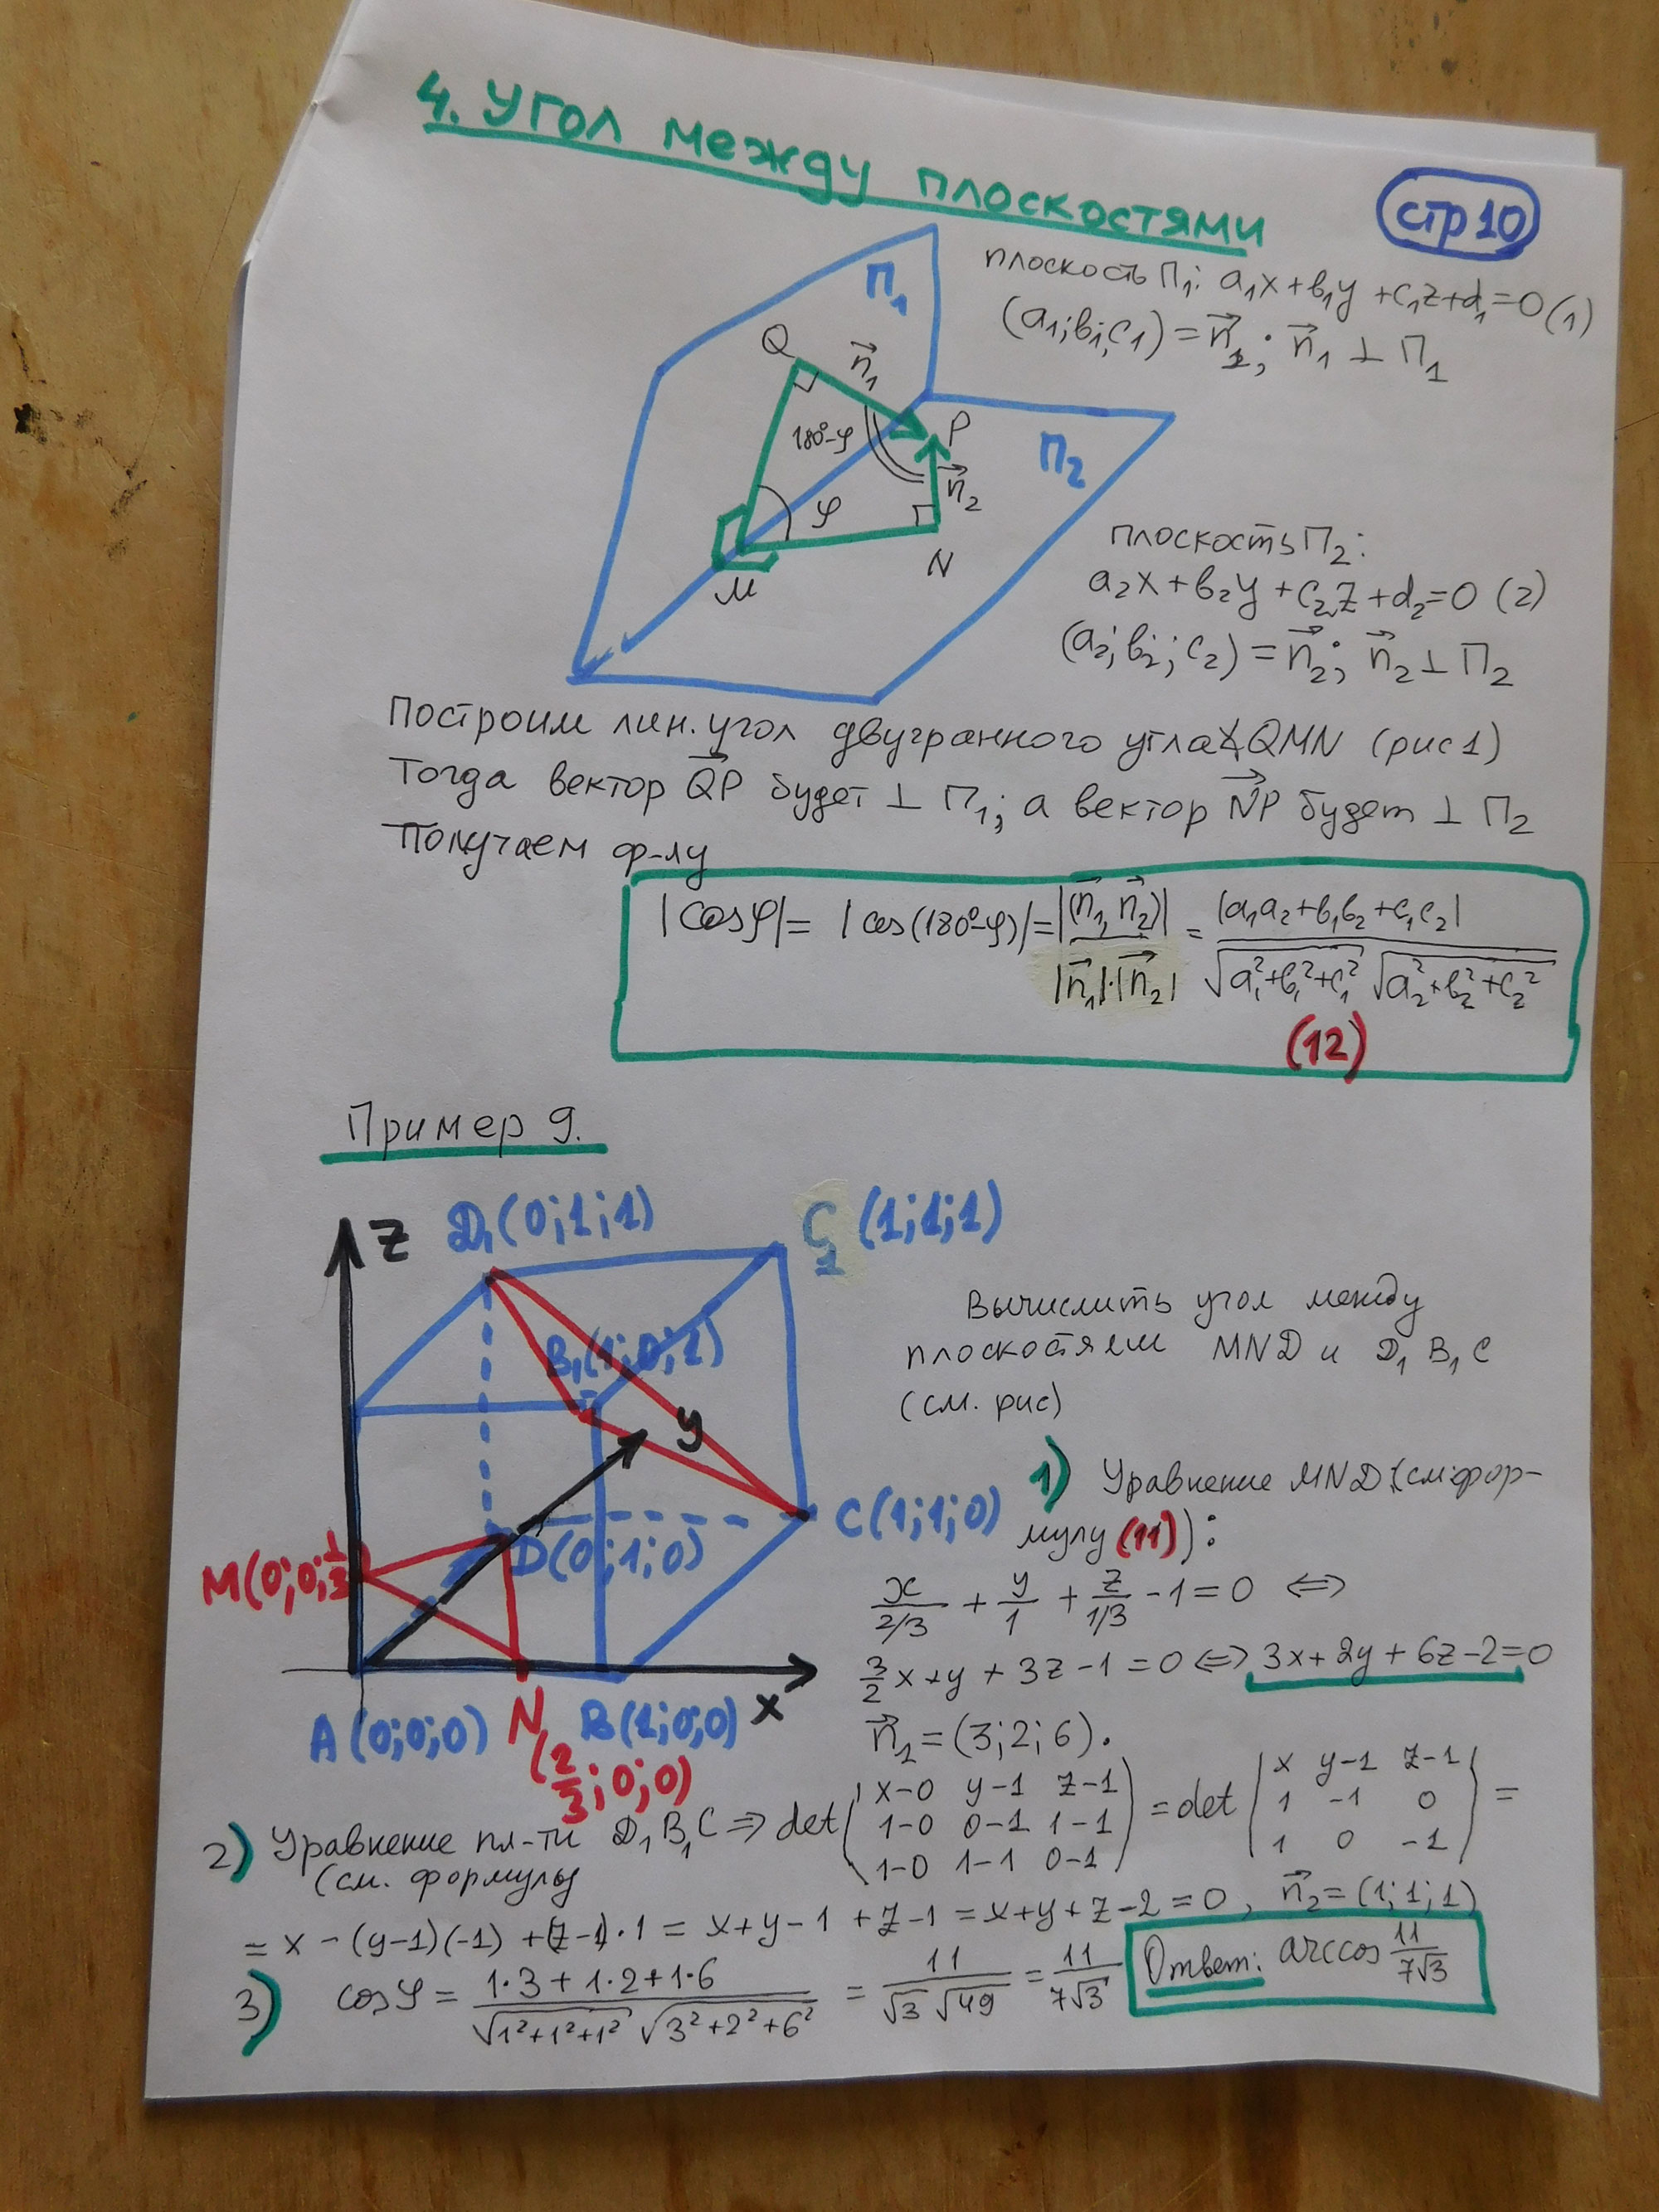 4. Угол между плоскостями
стр 10
плоскость П₁: a₁x+в₁y+c₁z+d₁=0 (1)
(a₁; в₁; c₁) = n⃗₁; n⃗₁ ⊥ П₁
П₁
Q
n⃗₁
180°-φ
P
П₂
n⃗₂
φ
M
N
плоскость П₂:
a₂x+в₂y+c₂z+d₂=0 (2)
(a₂; в₂; c₂) = n⃗₂; n⃗₂ ⊥ П₂
Построим лин. угол двугранного угла ∡QMN (рис 1)
Тогда вектор Q⃗P будет ⊥ П₁; а вектор N⃗P будет ⊥ П₂
Получаем ф-лу
|cosφ| = |cos(180°-φ)| = |(n⃗₁, n⃗₂)| / |n⃗₁|·|n⃗₂| = |a₁a₂+в₁в₂+c₁c₂| / √(a₁²+в₁²+c₁²) √(a₂²+в₂²+c₂²)
(12)
Пример 9.
Z
D₁(0;1;1)
C₁ (1;1;1)
B₁(1;0;1)
y
Вычислить угол между
плоскостями MND и D₁B₁C
(см. рис)
C(1;1;0)
D(0;1;0)
M(0;0;1/3)
A(0;0;0)
N
(2/3;0;0)
B(1;0;0)
x
1) Уравнение MND (см. фор-
мулу (11)):
x/(2/3) + y/1 + z/(1/3) - 1 = 0 ⇔
3/2 x + y + 3z - 1 = 0 ⇔ 3x+2y+6z-2=0
n⃗₁ = (3; 2; 6).
2) Уравнение пл-ти D₁B₁C ⇒ det(x-0 y-1 z-1; 1-0 0-1 1-1; 1-0 1-1 0-1) = det(x y-1 z-1; 1 -1 0; 1 0 -1) =
(см. формулу
= x - (y-1)(-1) + (z-1)·1 = x+y-1+z-1 = x+y+z-2=0, n⃗₂=(1;1;1)
3) cosφ = (1·3+1·2+1·6) / √(1²+1²+1²) √(3²+2²+6²) = 11/(√3 √49) = 11/(7√3)
Ответ: arccos 11/(7√3)